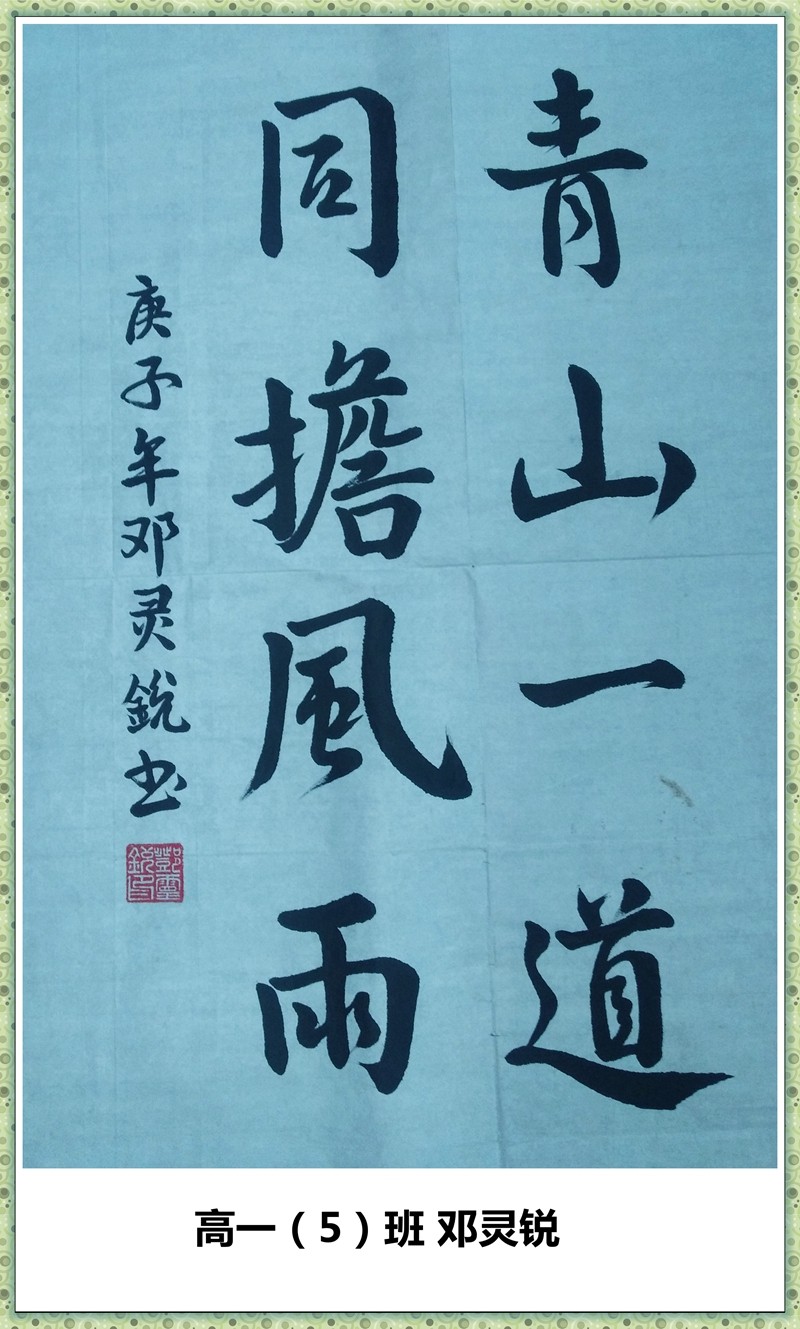 青山一道
同擔風雨
庚子年邓灵銳书
鄧靈
銳印
高一（5）班 邓灵锐